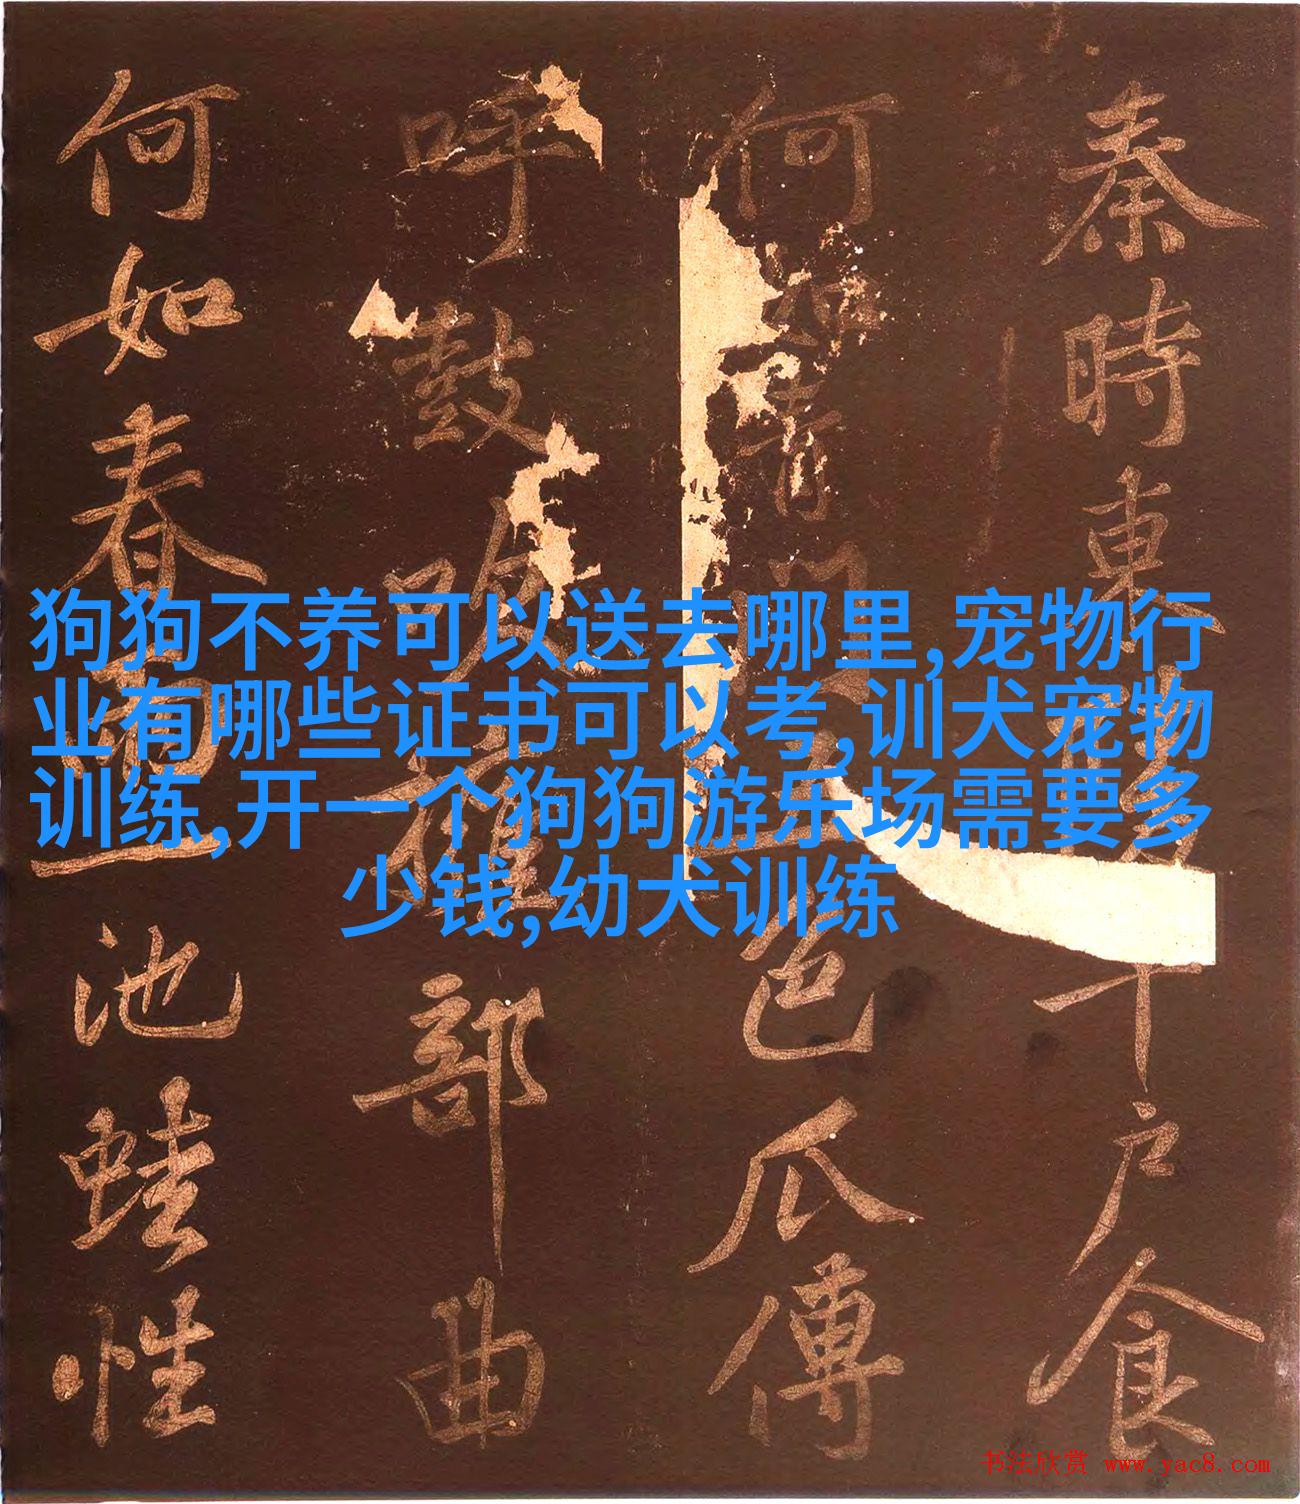 秦時東陵千户食
何如青門五色瓜傅
呼鼓吹擁部曲
何如春草池蛙性
狗狗不养可以送去哪里,宠物行
业有哪些证书可以考,训犬宠物
训练,开一个狗狗游乐场需要多
少钱,幼犬训练
书法欣赏 www.yac8.com